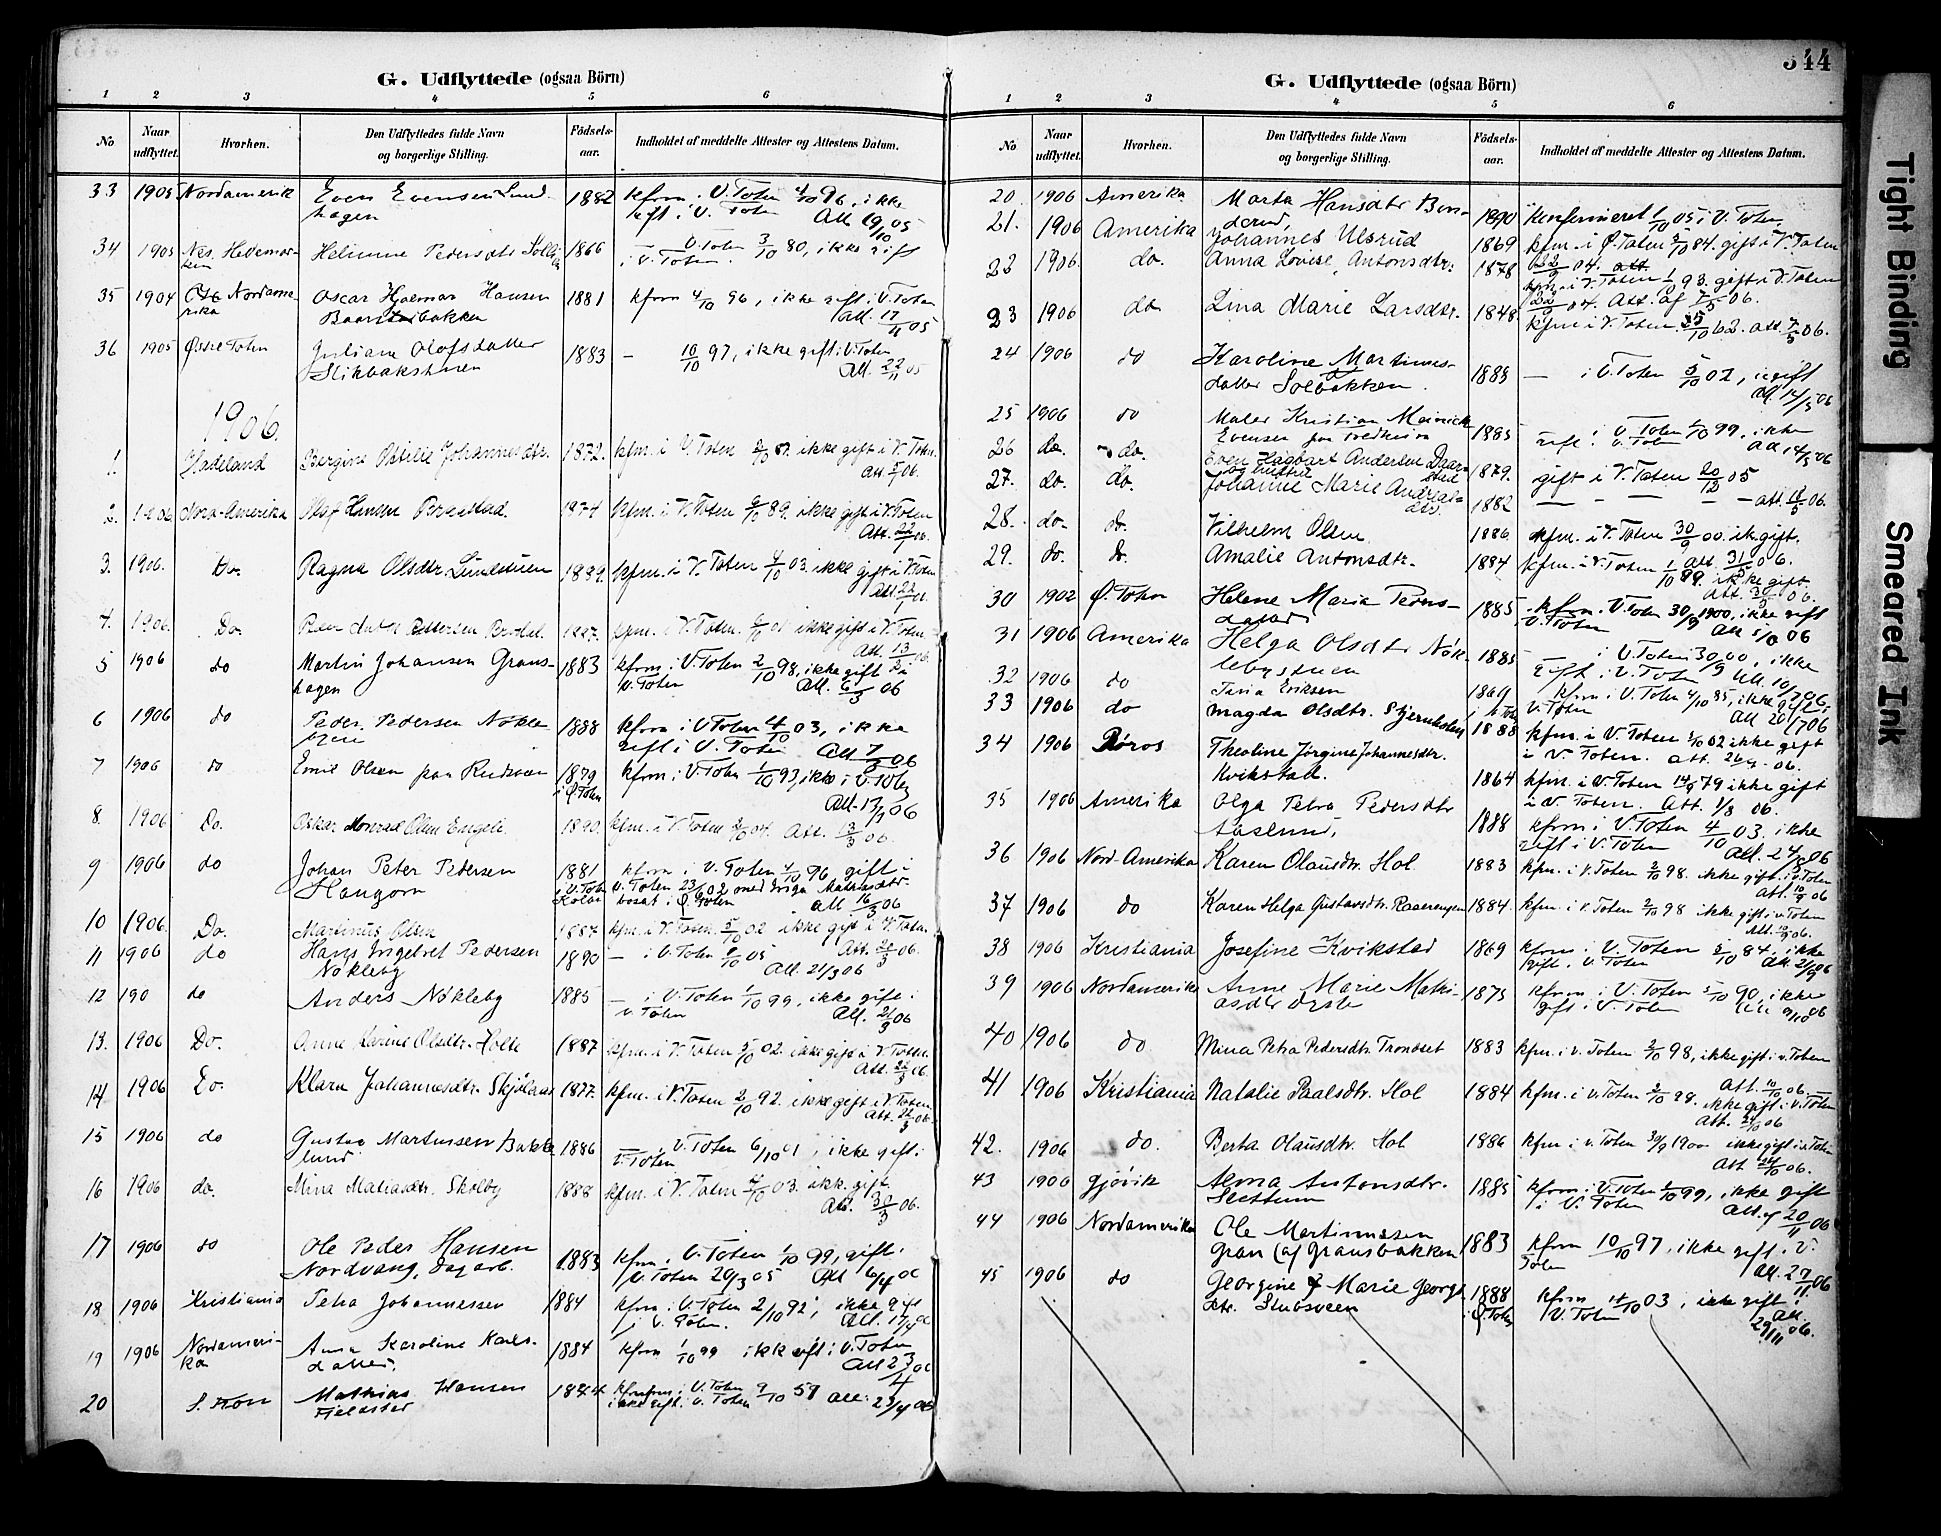 G. Udflyttede (ogsaa Börn)
1 2 3 4 5 6
No Naar udflyttet. Hvorhen. Den Udflyttedes fulde Navn og borgerlige Stilling. Födsels-aar. Indholdet af meddelte Attester og Attestens Datum.
33 1905 Nordamerik Even Evensen Lund- 1882 kfrm i V. Toten 4/10 96, ikke
hagen gift i V. Toten Att 19/10 05
34 1905 Nes. Hedemar- Helmine Pedersdtr 1866 V. Toten 3/10 80, ikke gift
ken i V. Toten.
35 1904 Nordame- Oscar Hjalmar Hansen 1881 kfrm 4/10 96, ikke gift i V. Toten
rika Baarstadbakken Att. 17/11 05
36 1905 Østre Toten Juliane Olofsdatter 1883 — 10/10 97, ikke gift i V. Toten
Slikbakstuen Att. 22/11 05
1906.
1. Hadeland Bergine Otilie Johannesdtr. 1872. kfm. i V. Toten ikke gift i V. Toten.
Att. 06.
2. Nord-Amerika Olaf Hansen 1874 kfm. i V. Toten 89. ikke gift i V. Toten
Att. 22/1 06.
3. 1906. Do. Ragna Olsdtr. Lundstuen 1889. kfm. i V. Toten 4/10 03. ikke gift i V. Toten
Att. 22/1
4. 1906. Do. Pettersen 1887. kfm. i V. Toten. ikke gift i V. Toten
Att. 13/2 06.
5 1906 do Martin Johansen Grans- 1883 kfrm i V. Toten 2/10 98, ikke gift i
hagen V. Toten Att. 6/3 06
6 1906 do Peder Pedersen Nökle- 1888 kfrm i V Toten 4/10 03, ikke
byeie gift i V. Toten Att 7/3 06
7 1906 do Emil Olsen paa Rudsveen 1879 kfrm i V. Toten 1/10 93, ikke i V. Toten
i Ø. Toten Att. 13/3 06
8. 1906 Do. Oskar Konrad Olsen Engeli. 1890. kfm. i V. Toten Att. 06.
9 1906 do Johan Peter Pedersen 1881 kfrm i V. Toten 4/10 96 gift i
Haugom i V. Toten V. Toten 23/6 02 med Inga Mathisdtr.
Kolbu bosat i Ø. Toten Att 16/3 06
10 1906. Do. Martinus Olsen 1887. kfm. i V. Toten. 5/10 02 ikke gift i V. Toten.
Att. 20/3 06.
11 1906 do Hans Ingebret Pedersen 1890 — i V. Toten 05
Nökleby Att. 21/3 06
12 190 do Anders Nökleby 1885 — i V. Toten 1/10 99, ikke gift i
V. Toten Att. 21/3 06
13. 1906 Do. Anne Karine Olsdtr. Holte 1887 kfm. i V. Toten 5/10 02. ikke gift i V. Toten.
Att. 22/3 06.
14 1906 Do. Klara Johannesdtr. 1877. kfm. i V. Toten 2/10 92. ikke gift i V. Toten.
Att. 22/3 06.
15 1906 do Gustav Martinssen Bakke- 1886 — i V. Toten 6/10 01, ikke gift i
lund V. Toten
16 1906 do. Mina Matiasdtr. Skolby 1888 kfm. i V. Toten 4/10 03. ikk. gift.
Att. 30/3 06.
17 1906 do Ole Peder Hansen 1883 kfrm i V. Toten 1/10 99, gift i
Nordvang, dagarb. V. Toten 20/3 05 Att 6/4 06
18 1906 Kristiania Petra Johannessen 1884 kfrm i V. Toten 2/10 92, ikke gift
i V. Toten. Att. 17/4 06
19 1906 Nordameri- Anna Karoline Karls- 1884 kfrm 1/10 99 ikke gift i V. Toten
ka datter. Att 23/4 06
20 Mathias Hansen 1844 kfrm i V. Toten 9/10 59 Att. 23/4 06
ikke gift i V. Toten
344
G. Udflyttede (ogsaa Börn)
1 2 3 4 5 6
No Naar udflyttet. Hvorhen. Den Udflyttedes fulde Navn og borgerlige Stilling. Födsels-aar. Indholdet af meddelte Attester og Attestens Datum.
20 1906 Amerika Marta Hansdtr Bon- 1890 konfirmeret 1/10 05 i V. Toten
derud,
21. 1906 Amerika Johannes Ulsrud 1869 kfm. i Ø. Toten 5/10 84. gift i V. Toten
22 1906. do. Anna Lovise Antonsdtr. 1878 22/9 04. att.
kfm. i V. Toten 1/10 93. gift i V. Toten
23 1906 do Lina Marie Larsdtr. 1848 22/9 04. Att. af 7/5 06.
kfm i V. Toten 62. att. 7/5 06.
24 1906 do Karoline Martinus- 1888 — i V. Toten 5/10 02, ugift
datter Solbakken. Att. 14/5 06
25 1906 do Maler Kristian Meinich 1885 i V. Toten 1/10 99, ikke
Evensen paa gift i V. Toten Att 14/5 06
26 do. do. Even Hagbart Andersen Daar- 1879. gift i V. Toten 20/12 05
stad
27. do. do. og hustru Johanne Marie Andreas- 1882 — — — — att. 18/5 06.
dtr.
28. do. do. Vilhelm Olsen 1886 kfm. i V. Toten 30/9 00. ik. gift.
29. do. do. Amalie Antonsdtr. 1884 kfm. i V. Toten 1/10 99. ikke gift. Att. 31/5 06.
Att. 30/5 06.
30 1902 Ø. Toten Helene Maria Peders- 1885 kfrm i V. Toten 30/9 1900, ikke gift
datter V. Toten Att 06
31 1906 Amerika Helga Olsdtr Nök- 1885 i V. Toten 30/9 00, ikke
lebystuen gift i V. Toten Att. 10/7 06
32 1906 do Tina Eriksen 1869 kfm i V. Toten 4/10 85, ikke gift i
V. Toten Att 20/7 06
33 1906 do Magda Olsdtr. 1888 kfm. i V. Toten 02 ikke gift
i V. Toten. Att. 06.
34 1906 Röros Theoline Jörgine Johannesdtr. 1864 kfm. i V. Toten 14/9 79 ikke gift
Kvikstad. i V Toten. Att. 1/8 06.
35 1906 Amerika Olga Petra Pedersdtr 1888 kfrm i V. Toten 4/10 03, ikke
Aaslund, gift i V. Toten Att. 24/8 06
36 1906 Nord-Amerika Karen Olausdtr. Hol 1883 kfm. i V. Toten 2/10 98. ikke gift i V. Toten
Att. 10/9 06
37 1906 do Karen Helga Gustavsdtr. Raaerengen 1884. kfm. i V. Toten 2/10 98 ikke gift i V. Toten
Att. 06.
38 1906 Kristiania Josefine Kvikstad 1869 kfrm i V. Toten 5/10 84, ikke
gift i V. Toten Att. 21/9 06
39 1906 Nordamerika Anne Marie Mathi- 1875 kfrm i V. Toten 5/10 90, ikke
asdtr gift i V. Toten Att 9/10 06
40 1906 do Mina Petra Pedersdtr. Tronset 1883 kfm. i V. Toten 2/10 98, ikke gift i V. Toten
Att. 10/10 06.
41 1906 Kristiania Natalie Paalsdtr. Hol 1884 kfm. i V. Toten 2/10 98. ikke gift i V. Toten
Att. 06
42. 1906 do. Berta Olausdtr. Hol 1886 kfm. i V. Toten 30/9 1900 ikke gift i V. Toten
Att. 24/10 06.
43 1906 Gjövik Anna Antonsdtr. 1885 kfrm i V. Toten 1/10 99, ikke gift
Slettum i V. Toten Att. af 20/11 06
44 1906 Nordamerika Ole Martinussen 1883 kfrm 10/10 97, ikke gift i V.
Gran (af Gransbakken) Toten Att. 27/11 06
45 1906 do Georgine Marie Georgs- 1888 kfrm 4/10 03, ikke gift i
dtr. Stubsveen i Ø. Toten V. Toten Att.
29/11 06.
Tight Binding
Smeared Ink